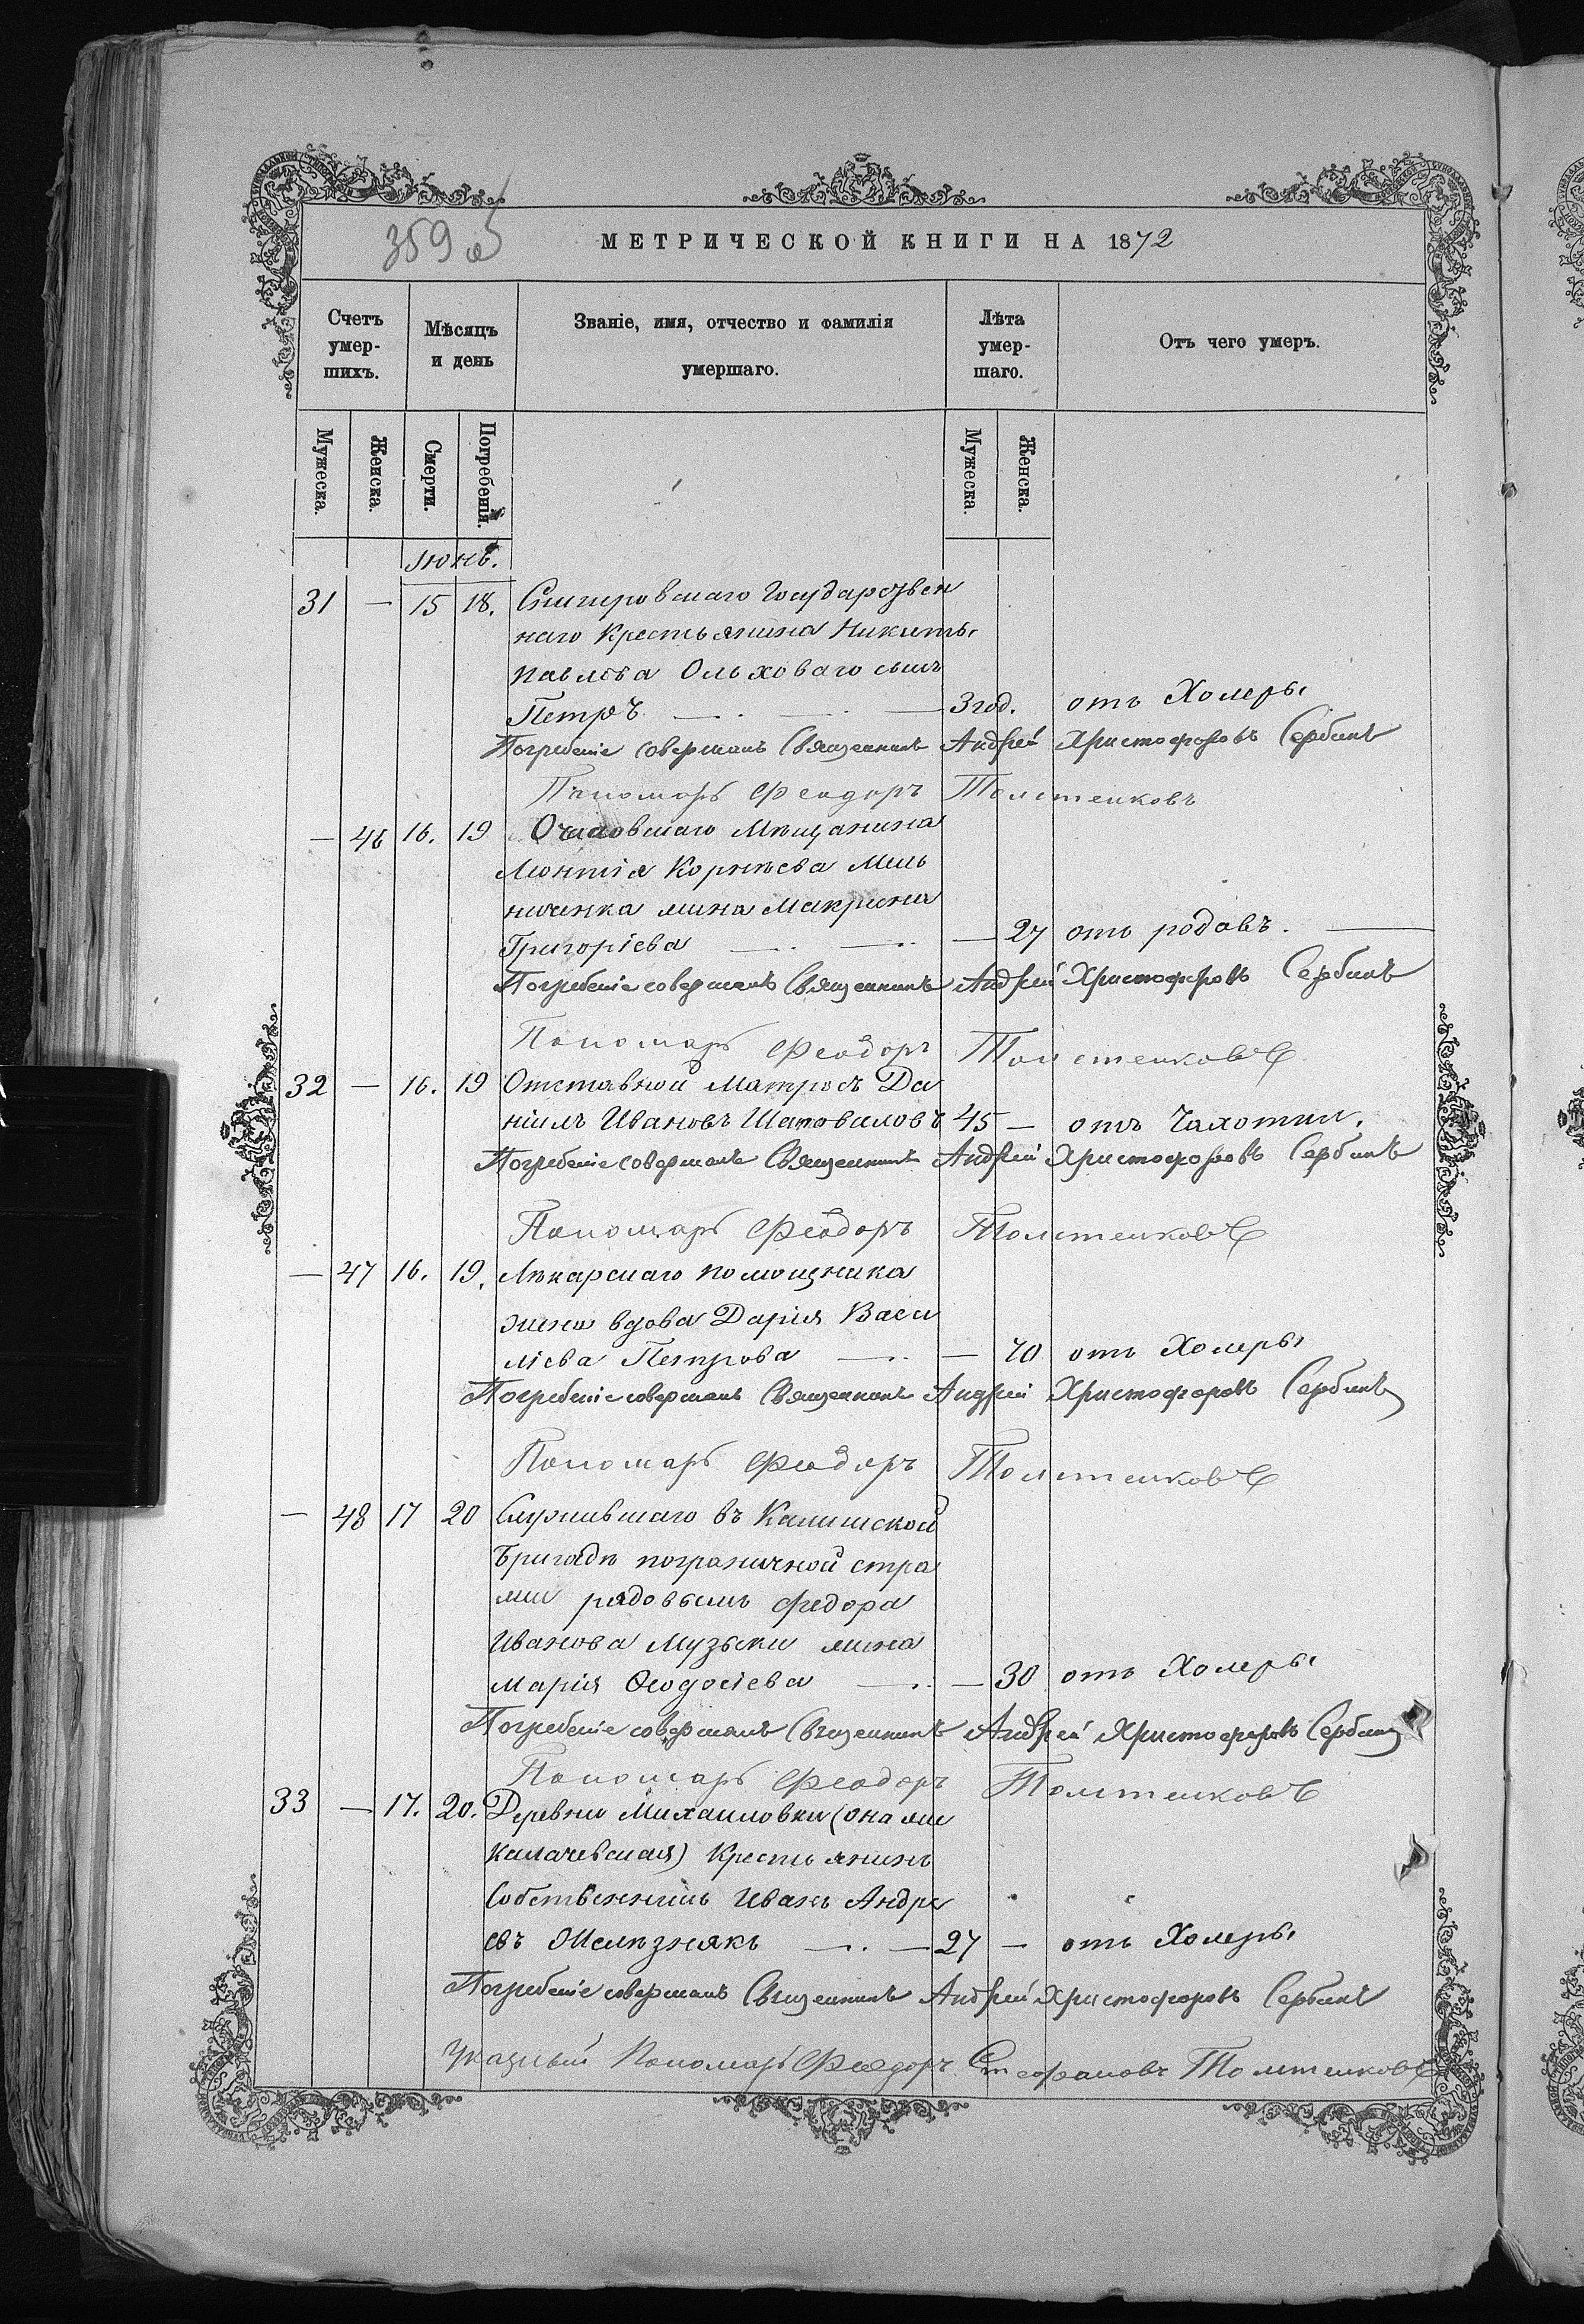 359 об
МЕТРИЧЕСКОЙ КНИГИ НА 1872
Счетъ умер-шихъ.
Мѣсяцъ и день
Званіе, имя, отчество и фамилія умершаго.
Лѣта умер-шаго.
Отъ чего умеръ.
Мужеска. Женска. Смерти. Погребенія. Мужеска. Женска.
Июнь.
31 — 15 18. Снигировскаго Государствен
наго Крестьянина Никиты
Павлова Ольховаго сынъ
Петръ — . — . — 3 год. отъ Холеры
Погребеніе совершалъ Священникъ Андрей Христофоровъ Сербинъ
Пономарь Феодоръ Толстенковъ
— 46 16. 19 Очаковскаго Мѣщанина
Леонтія Корнѣева Мель
ниченка жена Макрина
Григоріева — . — .. — 27 отъ родовъ. —
Погребеніе совершалъ Священникъ Андрей Христофоровъ Сербинъ
Пономарь Феодоръ Толстенковъ
32 — 16. 19 Отставной Матросъ Да
ніилъ Ивановъ Шаповаловъ 45 — отъ Чахотки.
Погребеніе совершалъ Священникъ Андрей Христофоровъ Сербинъ
Пономарь Феодоръ Толстенковъ
— 47 16. 19. Лѣкарскаго помощника
жена вдова Дарія Васи
ліева Петрова — .. — 70 отъ Холеры
Погребеніе совершалъ Священникъ Андрей Христофоровъ Сербинъ
Пономарь Феодоръ Толстенковъ
— 48 17 20 Служившаго въ Калишской
бригадѣ пограничной стра
жи рядовымъ Федора
Иванова Музыки жена
Марія Ѳеодосіева — .. — 30 отъ Холеры
Погребеніе совершалъ Священникъ Андрей Христофоровъ Сербинъ
Пономарь Феодоръ Толстенковъ
33 — 17. 20. Деревни Михаиловки (она же
Калачевская) Крестьянинъ
Собственникъ Иванъ Андре
евъ Желѣзнякъ — . — 27 — отъ Холеры
Погребеніе совершалъ Священникъ Андрей Христофоровъ Сербинъ
Указный Пономарь Феодоръ Стефановъ Толстенковъ